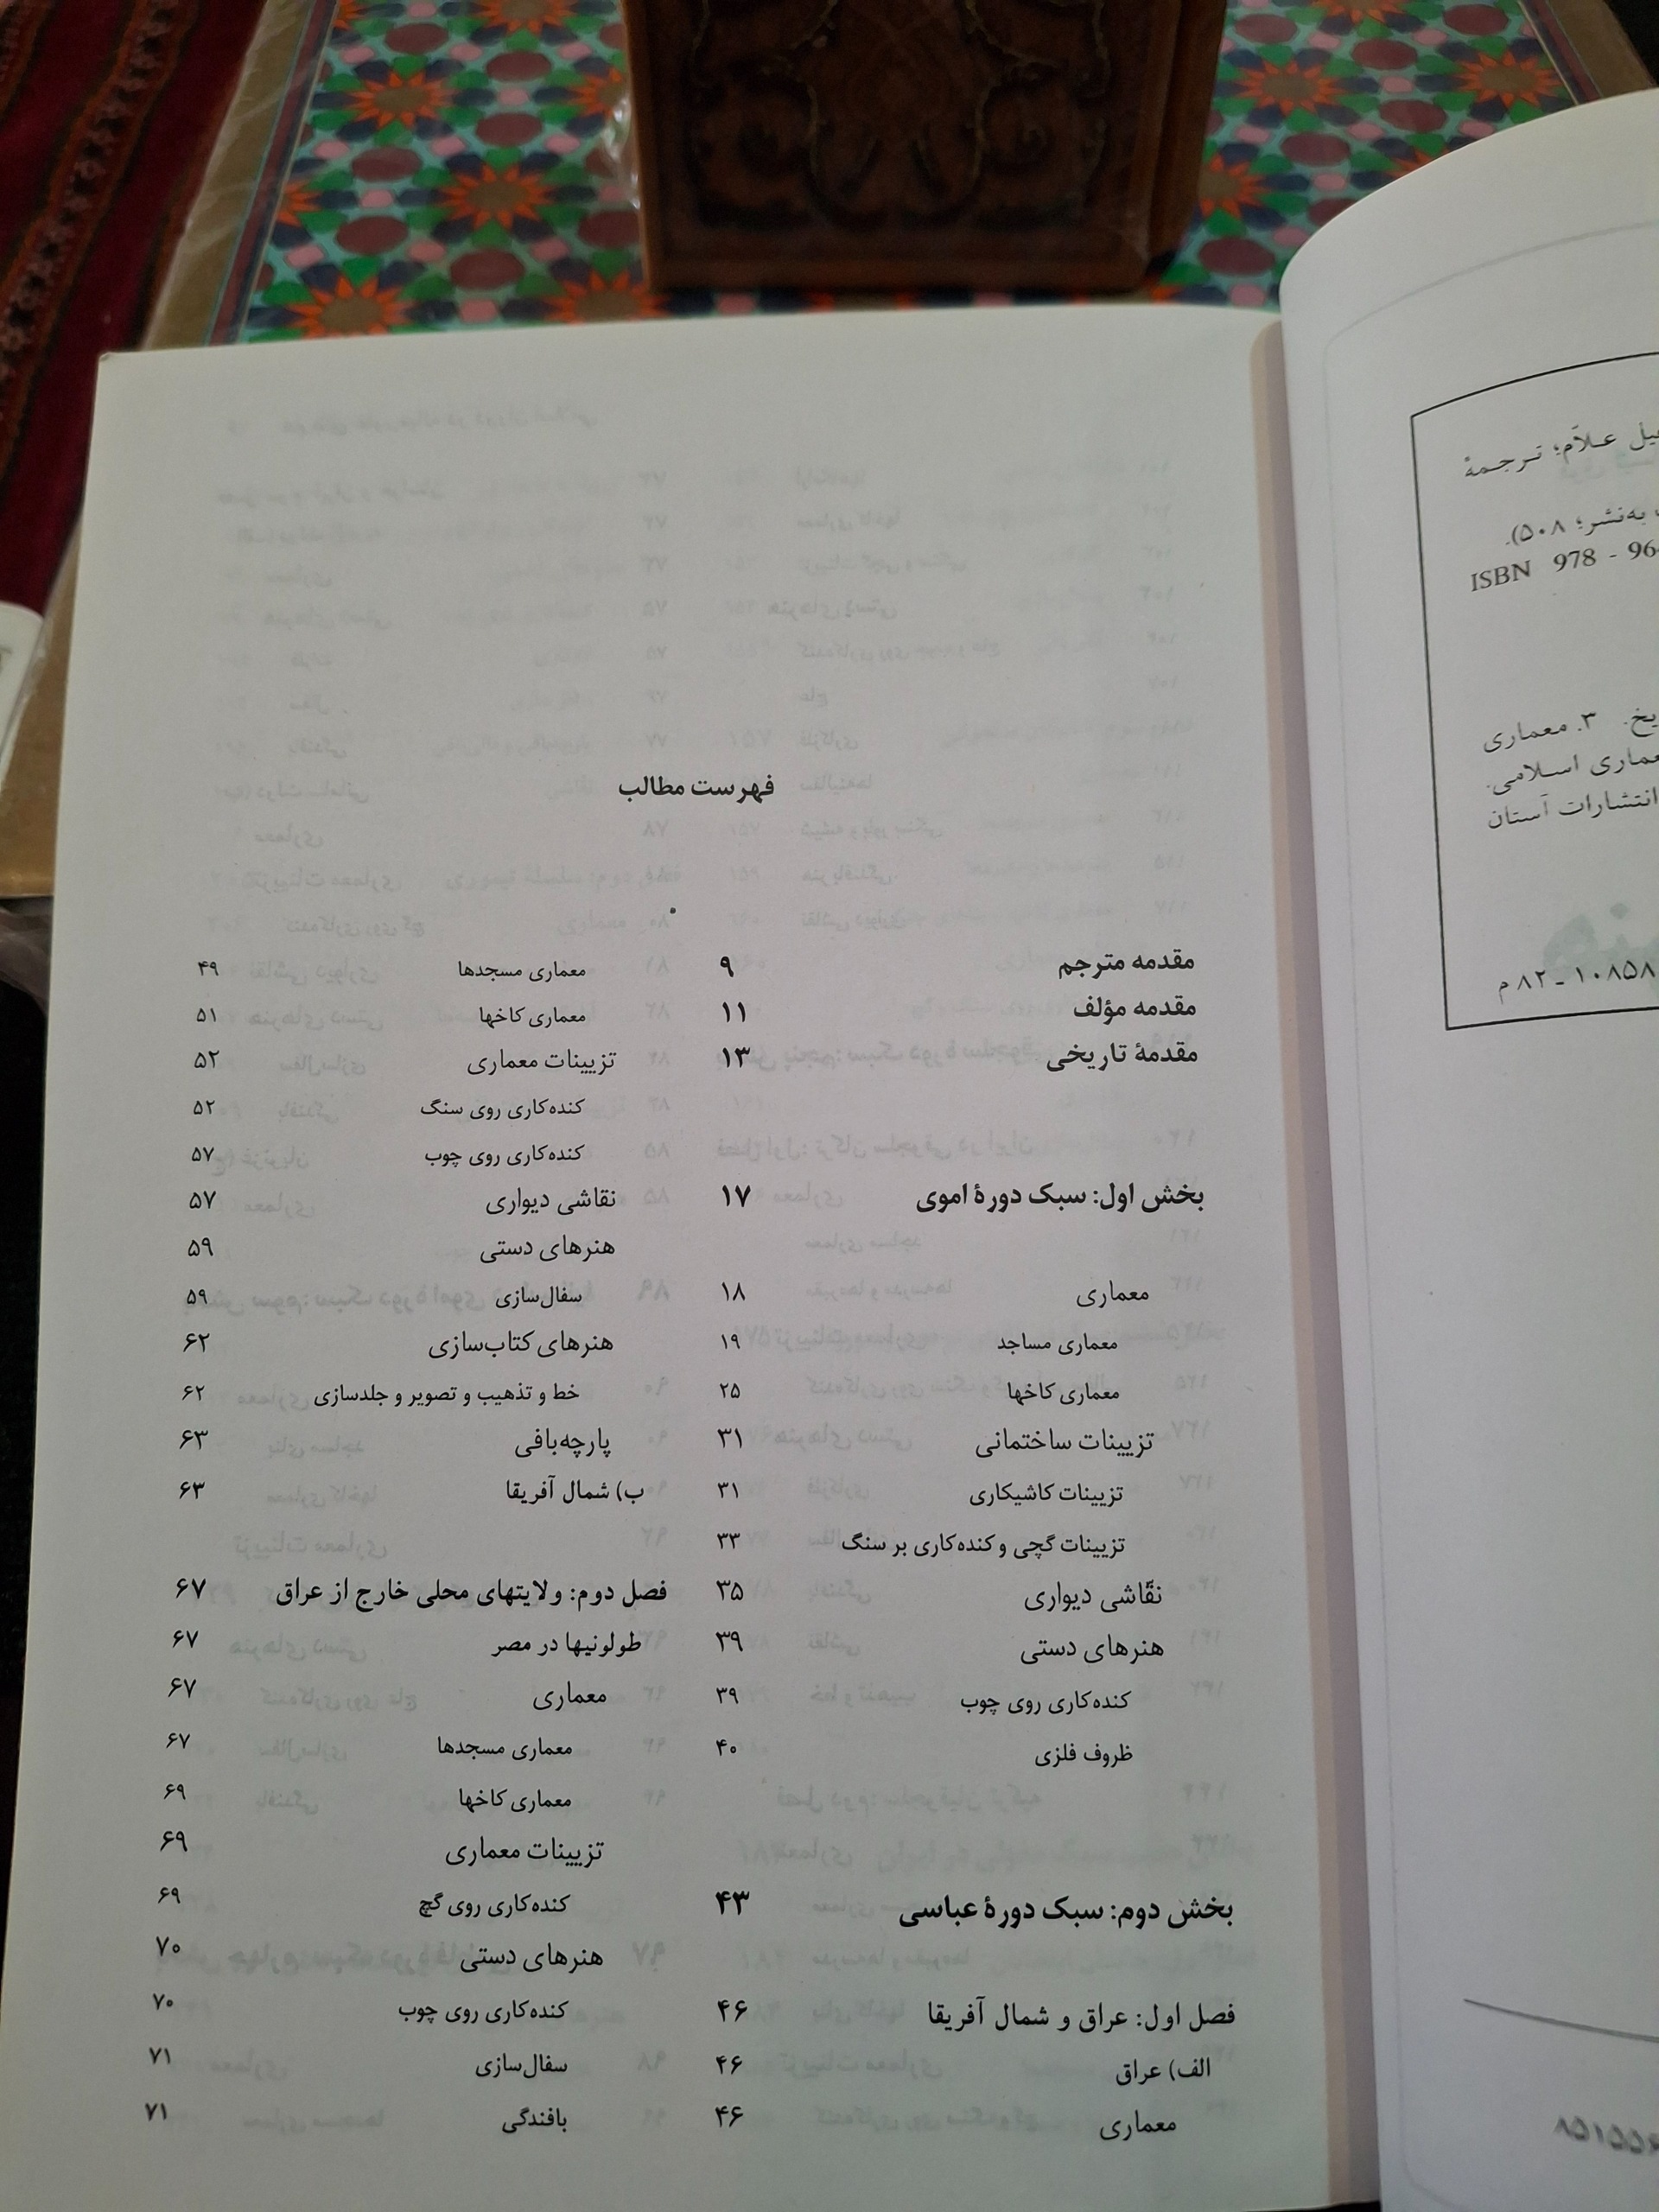 فهرست مطالب
مقدمه مترجم ۹
مقدمه مؤلف ۱۱
مقدمهٔ تاریخی ۱۳
بخش اول: سبک دورهٔ اموی ۱۷
معماری ۱۸
معماری مساجد ۱۹
معماری کاخها ۲۵
تزیینات ساختمانی ۳۱
تزیینات کاشیکاری ۳۱
تزیینات گچی و کنده‌کاری بر سنگ ۳۳
نقّاشی دیواری ۳۵
هنرهای دستی ۳۹
کنده‌کاری روی چوب ۳۹
ظروف فلزی ۴۰
بخش دوم: سبک دورهٔ عباسی ۴۳
فصل اول: عراق و شمال آفریقا ۴۶
الف) عراق ۴۶
معماری ۴۶
معماری مسجدها ۴۹
معماری کاخها ۵۱
تزیینات معماری ۵۲
کنده‌کاری روی سنگ ۵۲
کنده‌کاری روی چوب ۵۷
نقاشی دیواری ۵۷
هنرهای دستی ۵۹
سفال‌سازی ۵۹
هنرهای کتاب‌سازی ۶۲
خط و تذهیب و تصویر و جلدسازی ۶۲
پارچه‌بافی ۶۳
ب) شمال آفریقا ۶۳
فصل دوم: ولایتهای محلی خارج از عراق ۶۷
طولونیها در مصر ۶۷
معماری ۶۷
معماری مسجدها ۶۷
معماری کاخها ۶۹
تزیینات معماری ۶۹
کنده‌کاری روی گچ ۶۹
هنرهای دستی ۷۰
کنده‌کاری روی چوب ۷۰
سفال‌سازی ۷۱
بافندگی ۷۱
علاّم؛ ترجمهٔ
به‌نشر؛ ۵۰۸).
ISBN 978 - 96
۳. معماری
اسلامی.
انتشارات آستان
۱۰۸۵۸ ـ ۸۲ م